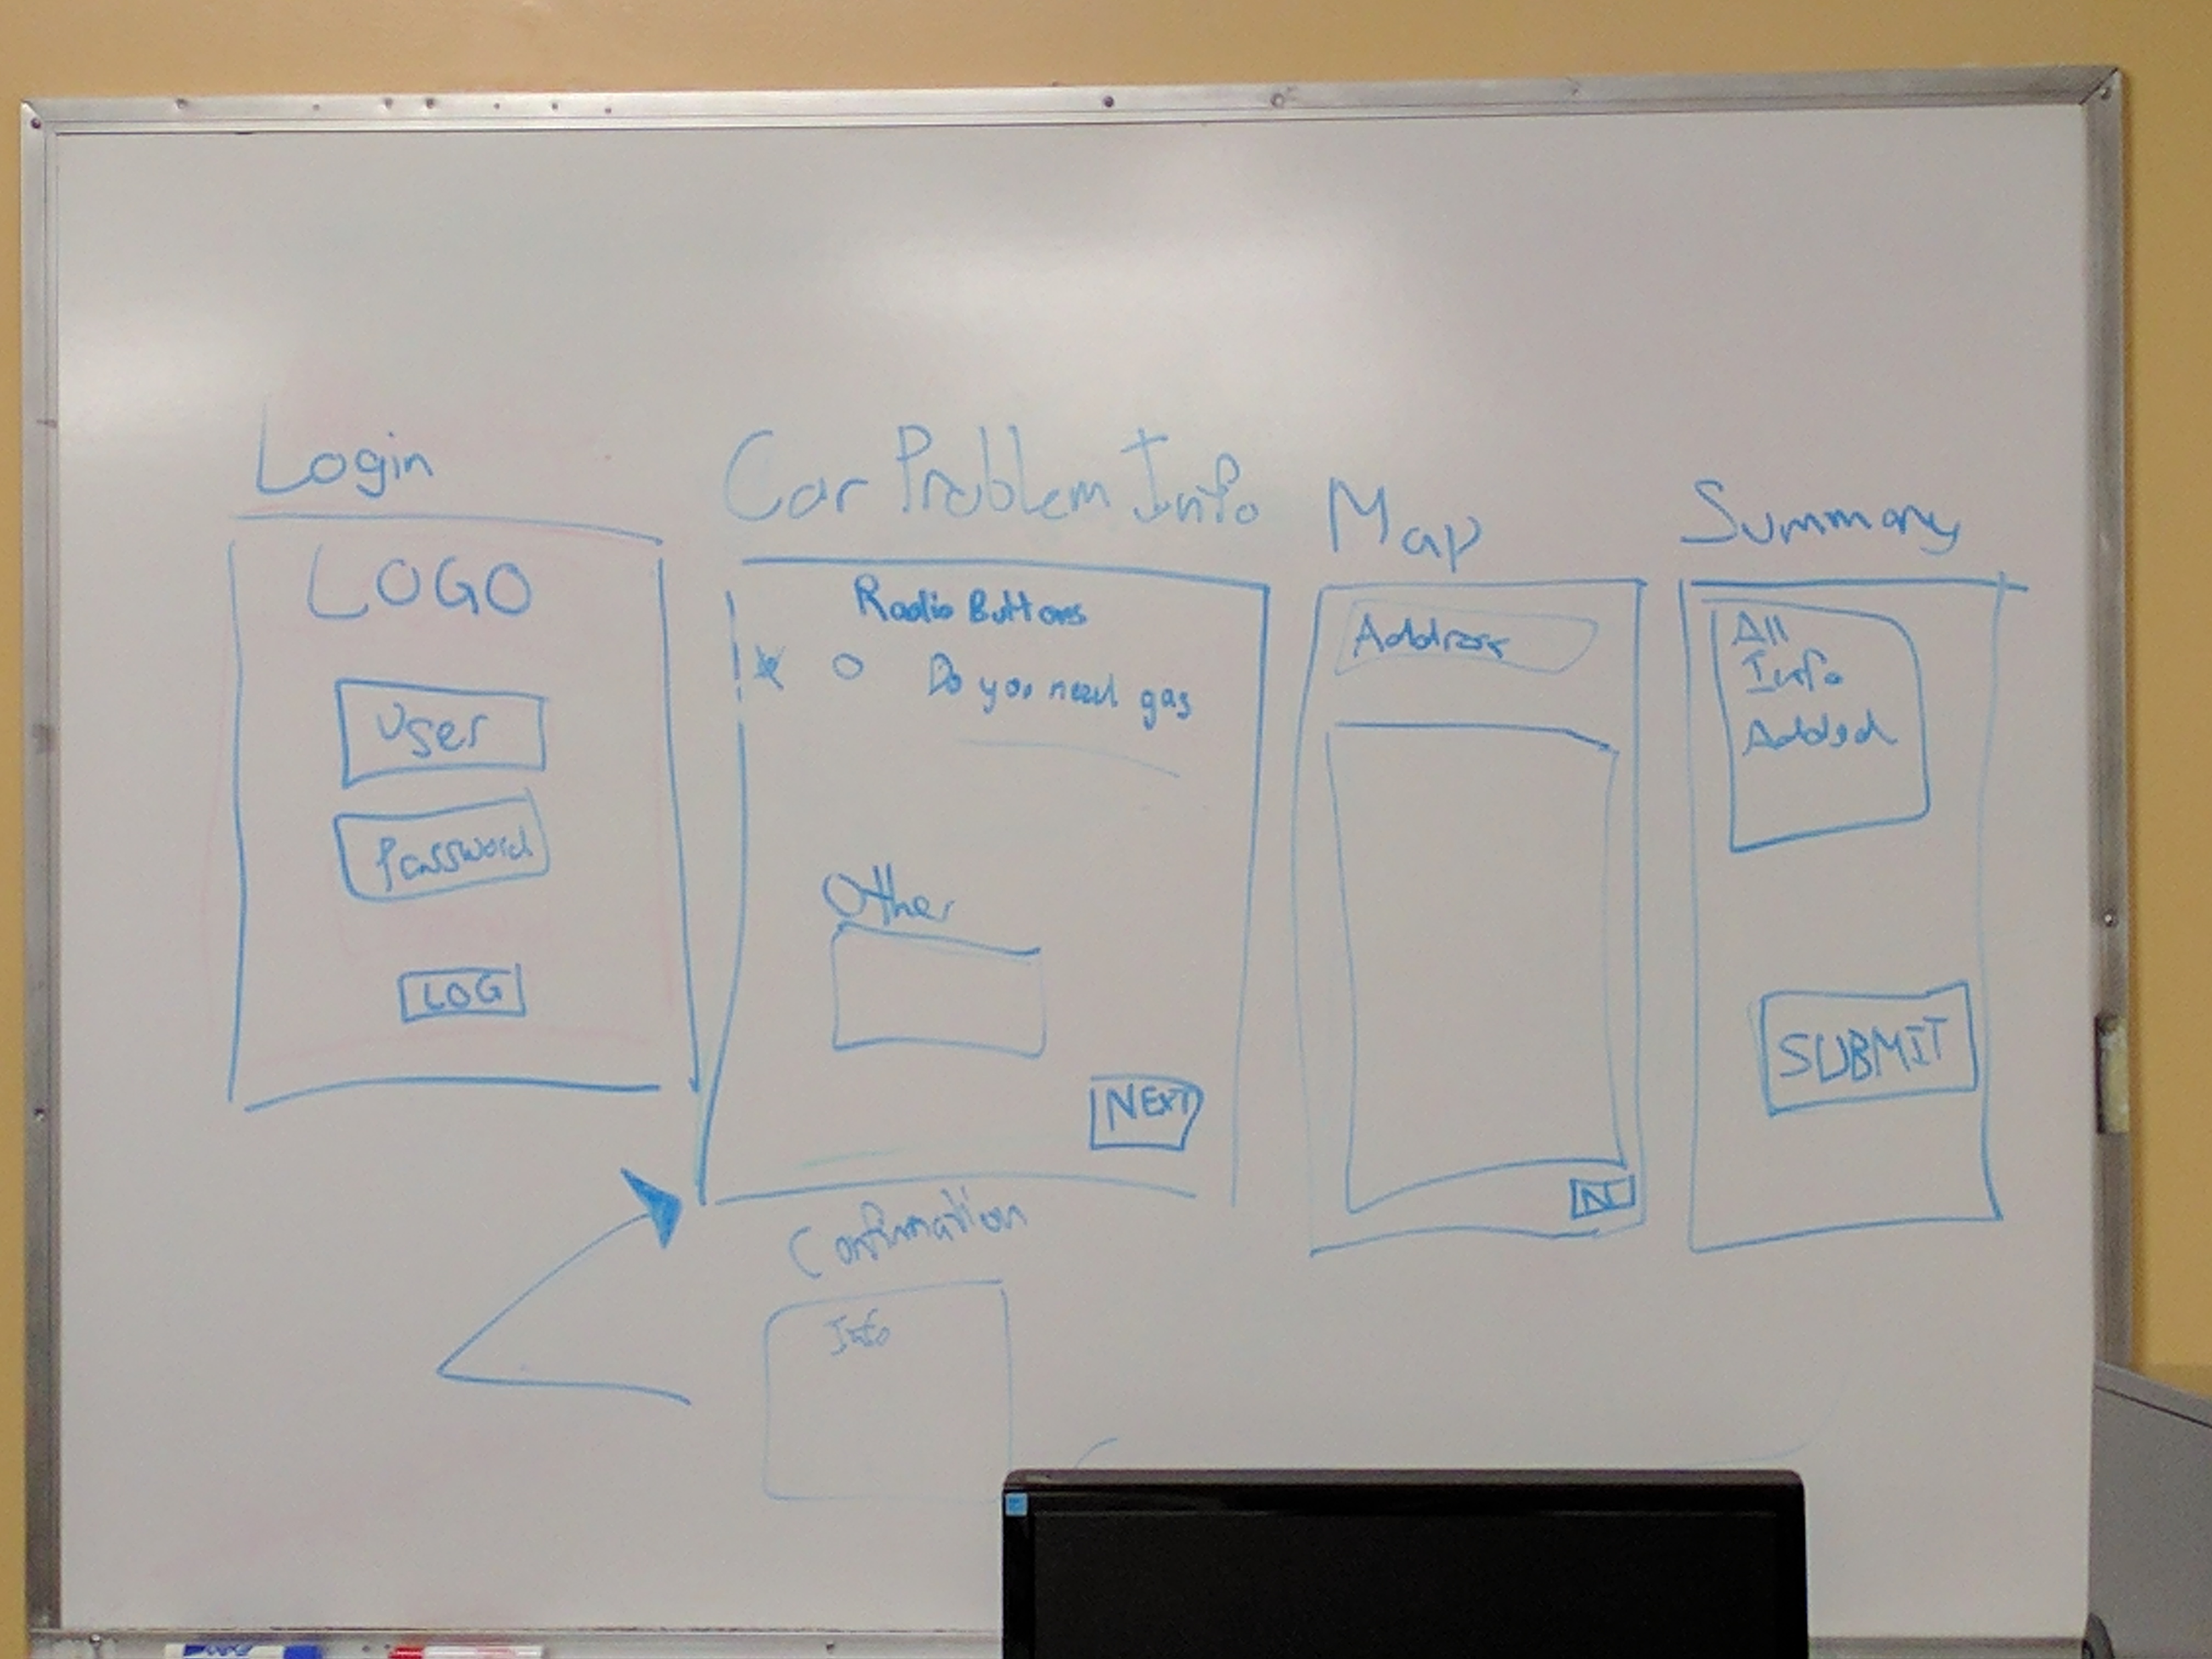 Login
LOGO
User
Password
LOG
Car Problem Info
Radio Buttons
Do you need gas
Other
NEXT
Map
Address
N
Summary
All
Info
Added
SUBMIT
Confirmation
Info